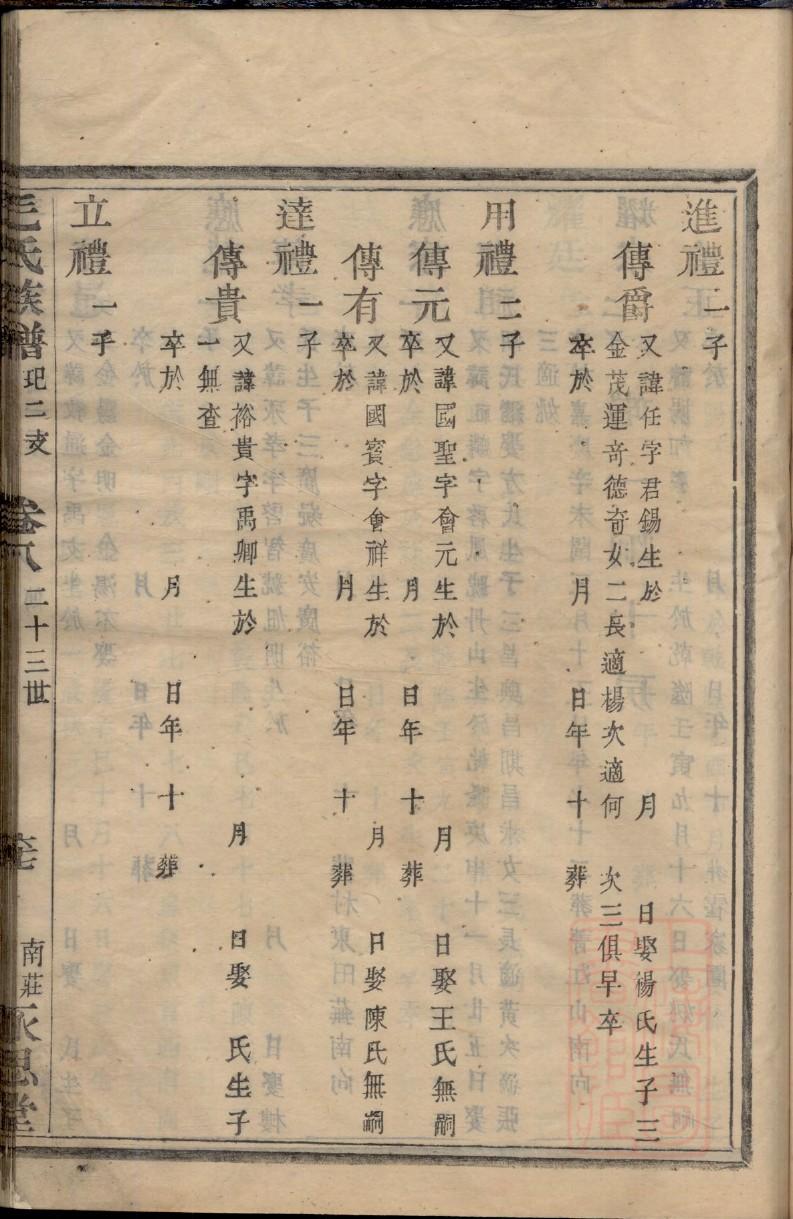 進禮一子
傳爵又諱任字君錫生於 月 日娶楊氏生子三
金茂運奇德奇女二長適楊次適何 次三俱早卒
卒於 月 日年 十 葬
用禮二子
傳元又諱國聖字會元生於 月 日娶王氏無嗣
卒於 月 日年 十 葬
傳有又諱國賓字會祥生於 月 日娶陳氏無嗣
卒於 月 日年 十 葬
達禮一子
傳貴又諱裕貴字禹卿生於 月 日娶 氏生子
一無查
卒於 月 日年 十 葬
立禮一子
毛氏族譜 玘二支 卷八 二十三世 南莊永思堂